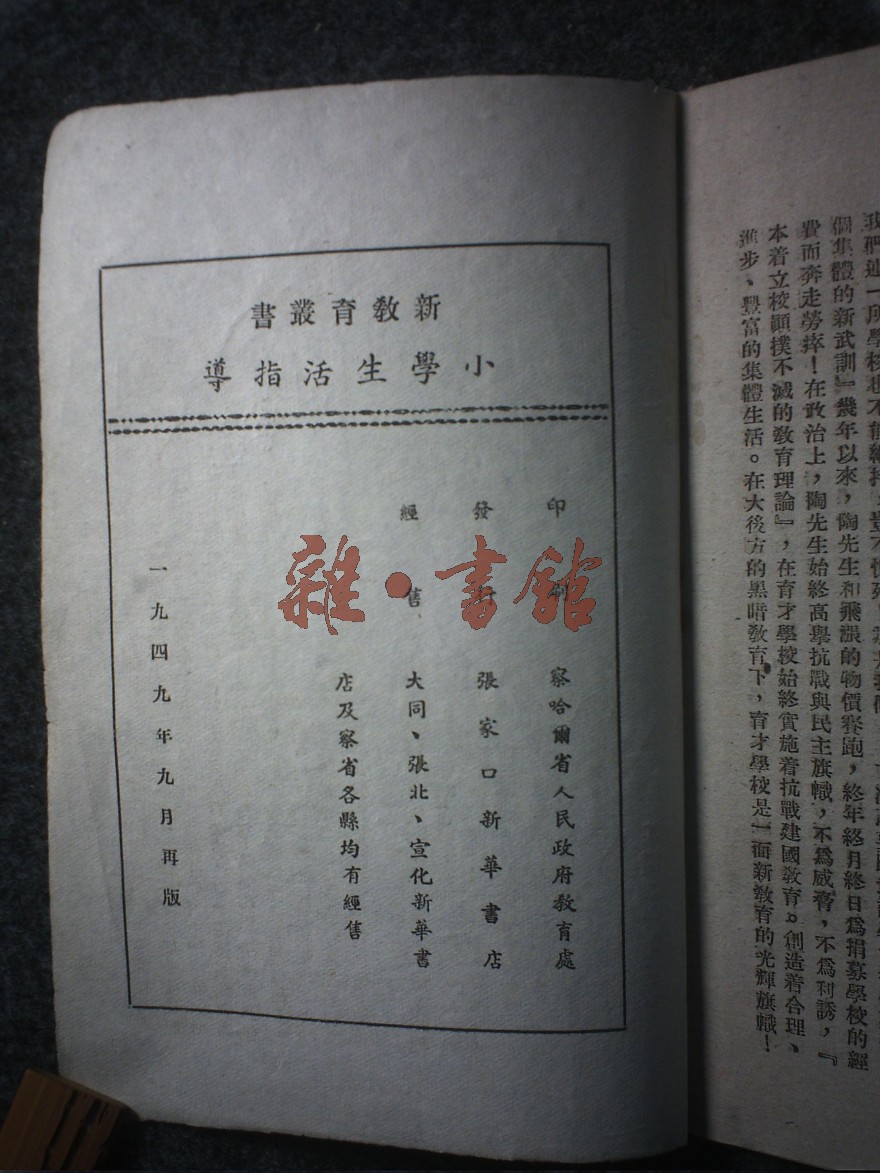 個集體的新武訓』幾年以來，陶先生和飛漲的物價賽跑，終年終月終日爲捐募學校的經
費而奔走勞瘁！在政治上，陶先生始終高舉抗戰與民主旗幟，不爲威脅，不爲利誘，『
本着立校顛撲不滅的教育理論』，在育才學校始終實施着抗戰建國教育。創造着合理、
進步、豐富的集體生活。在大後方的黑暗教育下，育才學校是一面新教育的光輝旗幟！
新教育叢書
小學生活指導
印刷 察哈爾省人民政府教育處
發行 張家口新華書店
經售 大同、張北、宣化新華書
店及察省各縣均有經售
一九四九年九月再版
雜·書館